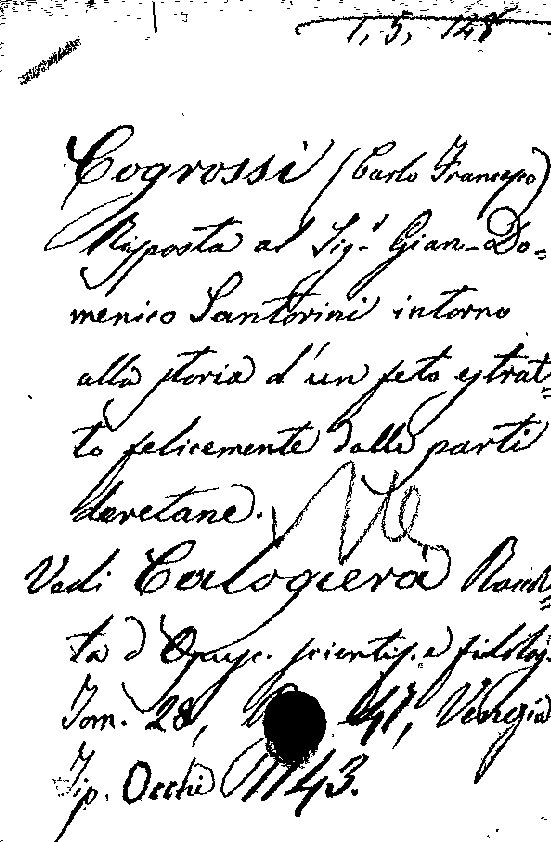 1, 5, 128
Cogrossi (Carlo Francesco)
Risposta al Sig.r Gian-Do=
menico Santorini intorno
alla storia d'un feto estrat=
to felicemente dalle parti
deretane.
Vedi Calogierà Raccol=
ta d'Opusc. scientif. e filolog.
Tom. 28, 47, Venezia
Tip. Occhi 1743.